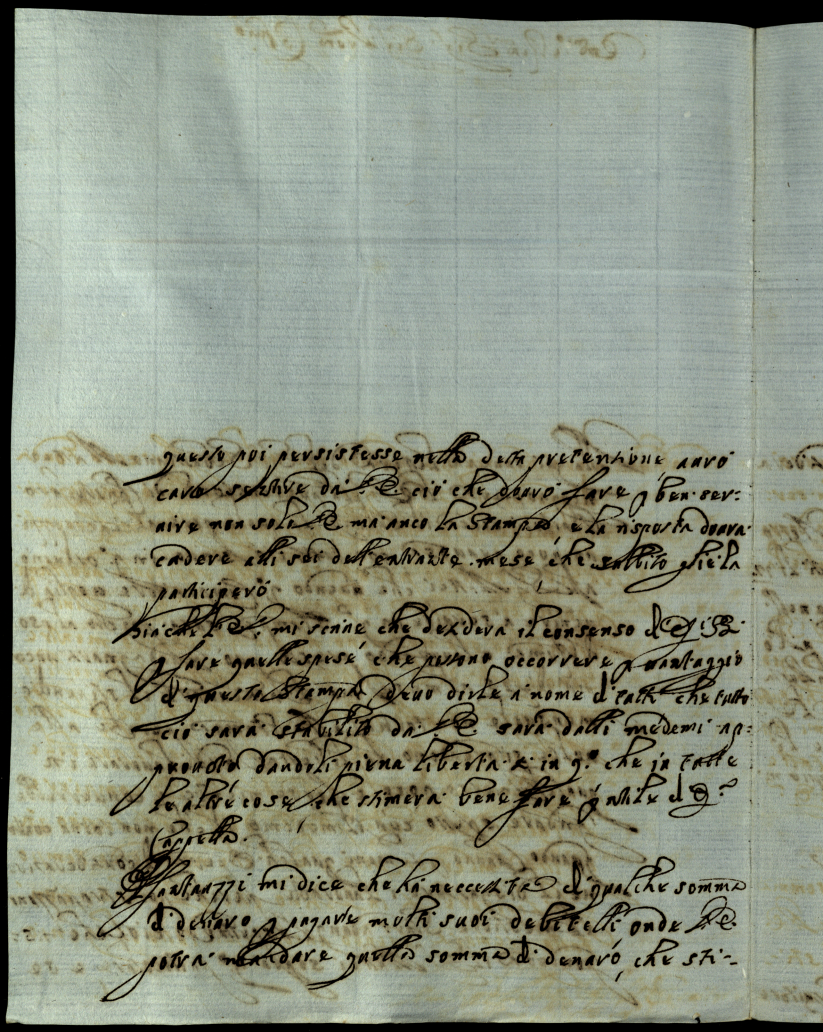 questo poi persistesse nella detta pretentione avrò
caro sentire da V.E. ciò che dovrò fare p ben ser-
vire non solo V.E. ma anco la Stampa, e la risposta dovrà
cadere alli sei dell'entrante mese che subbito gliela
participerò
Giache V.E. mi scrive che desidera il consenso di
p fare quelle spese che possono occorrere p vantaggio
di questa Stampa devo dirle a nome di tutti che tutto
ciò sarà stabilito da V.E. sarà dalli medemi ap-
provato dandoli piena libertà sì in q.to che in tutte
le altre cose che stimerà bene fare p utile di q.ta
Cappella.
Fantauzzi mi dice che hà neccessità di qualche somma
di denaro p pagare molti suoi debitelli onde V.E.
potrà mandare quella somma di denaro che sti-